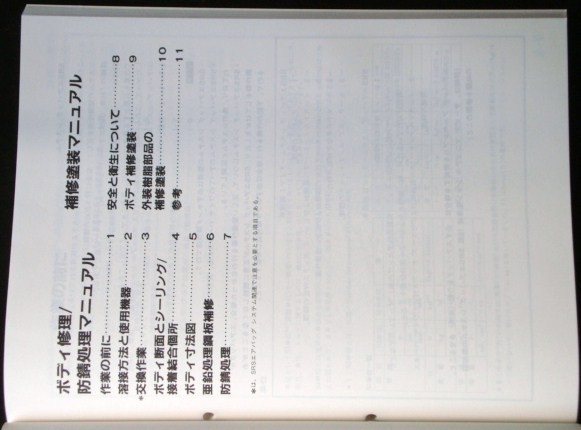 ボディ修理/
防錆処理マニュアル
作業の前に……………………1
溶接方法と使用機器…………2
*交換作業……………………3
ボディ断面とシーリング/
接着結合個所…………………4
ボディ寸法図…………………5
亜鉛処理鋼板補修……………6
防錆処理………………………7
補修塗装マニュアル
安全と衛生について…………8
ボディ補修塗装………………9
外装樹脂部品の
補修塗装………………………10
参考……………………………11
*は、SRSエアバッグ システム関連で注意を必要とする項目である。